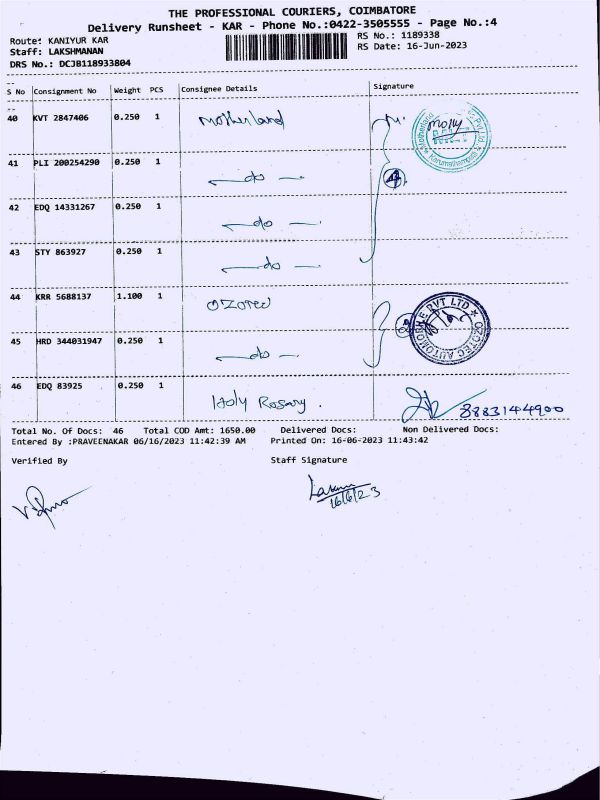 THE PROFESSIONAL COURIERS, COIMBATORE
Delivery Runsheet - KAR - Phone No.:0422-3505555 - Page No.:4
Route: KANIYUR KAR
RS No.: 1189338
Staff: LAKSHMANAN
RS Date: 16-Jun-2023
DRS No.: DCJB118933804
S No Consignment No Weight PCS Consignee Details Signature
40 KVT 2847406 0.250 1 Motherland
Molly
41 PLI 200254290 0.250 1 do
42 EDQ 14331267 0.250 1 do
43 STY 863927 0.250 1 do
44 KRR 5688137 1.100 1 OZOTEC
OZOTEC AUTOMOBILE PVT LTD
45 HRD 344031947 0.250 1 do
46 EDQ 83925 0.250 1 Holy Rosary. 8883144900
Total No. Of Docs: 46 Total COD Amt: 1650.00 Delivered Docs: Non Delivered Docs:
Entered By :PRAVEENAKAR 06/16/2023 11:42:39 AM Printed On: 16-06-2023 11:43:42
Verified By Staff Signature
16/6/23